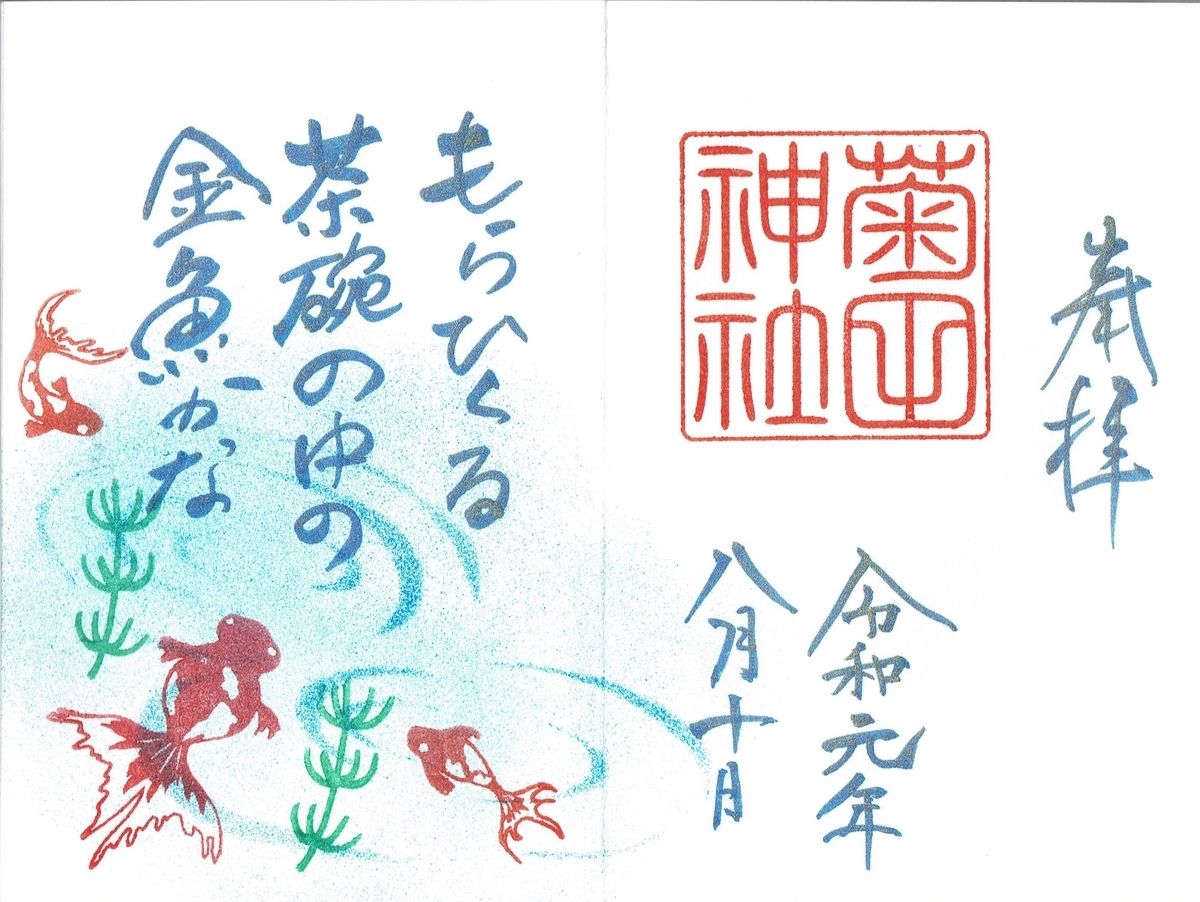 奉拝
菊田
神社
令和元年
八月十日
もらひくる
茶碗の中の
金魚かな